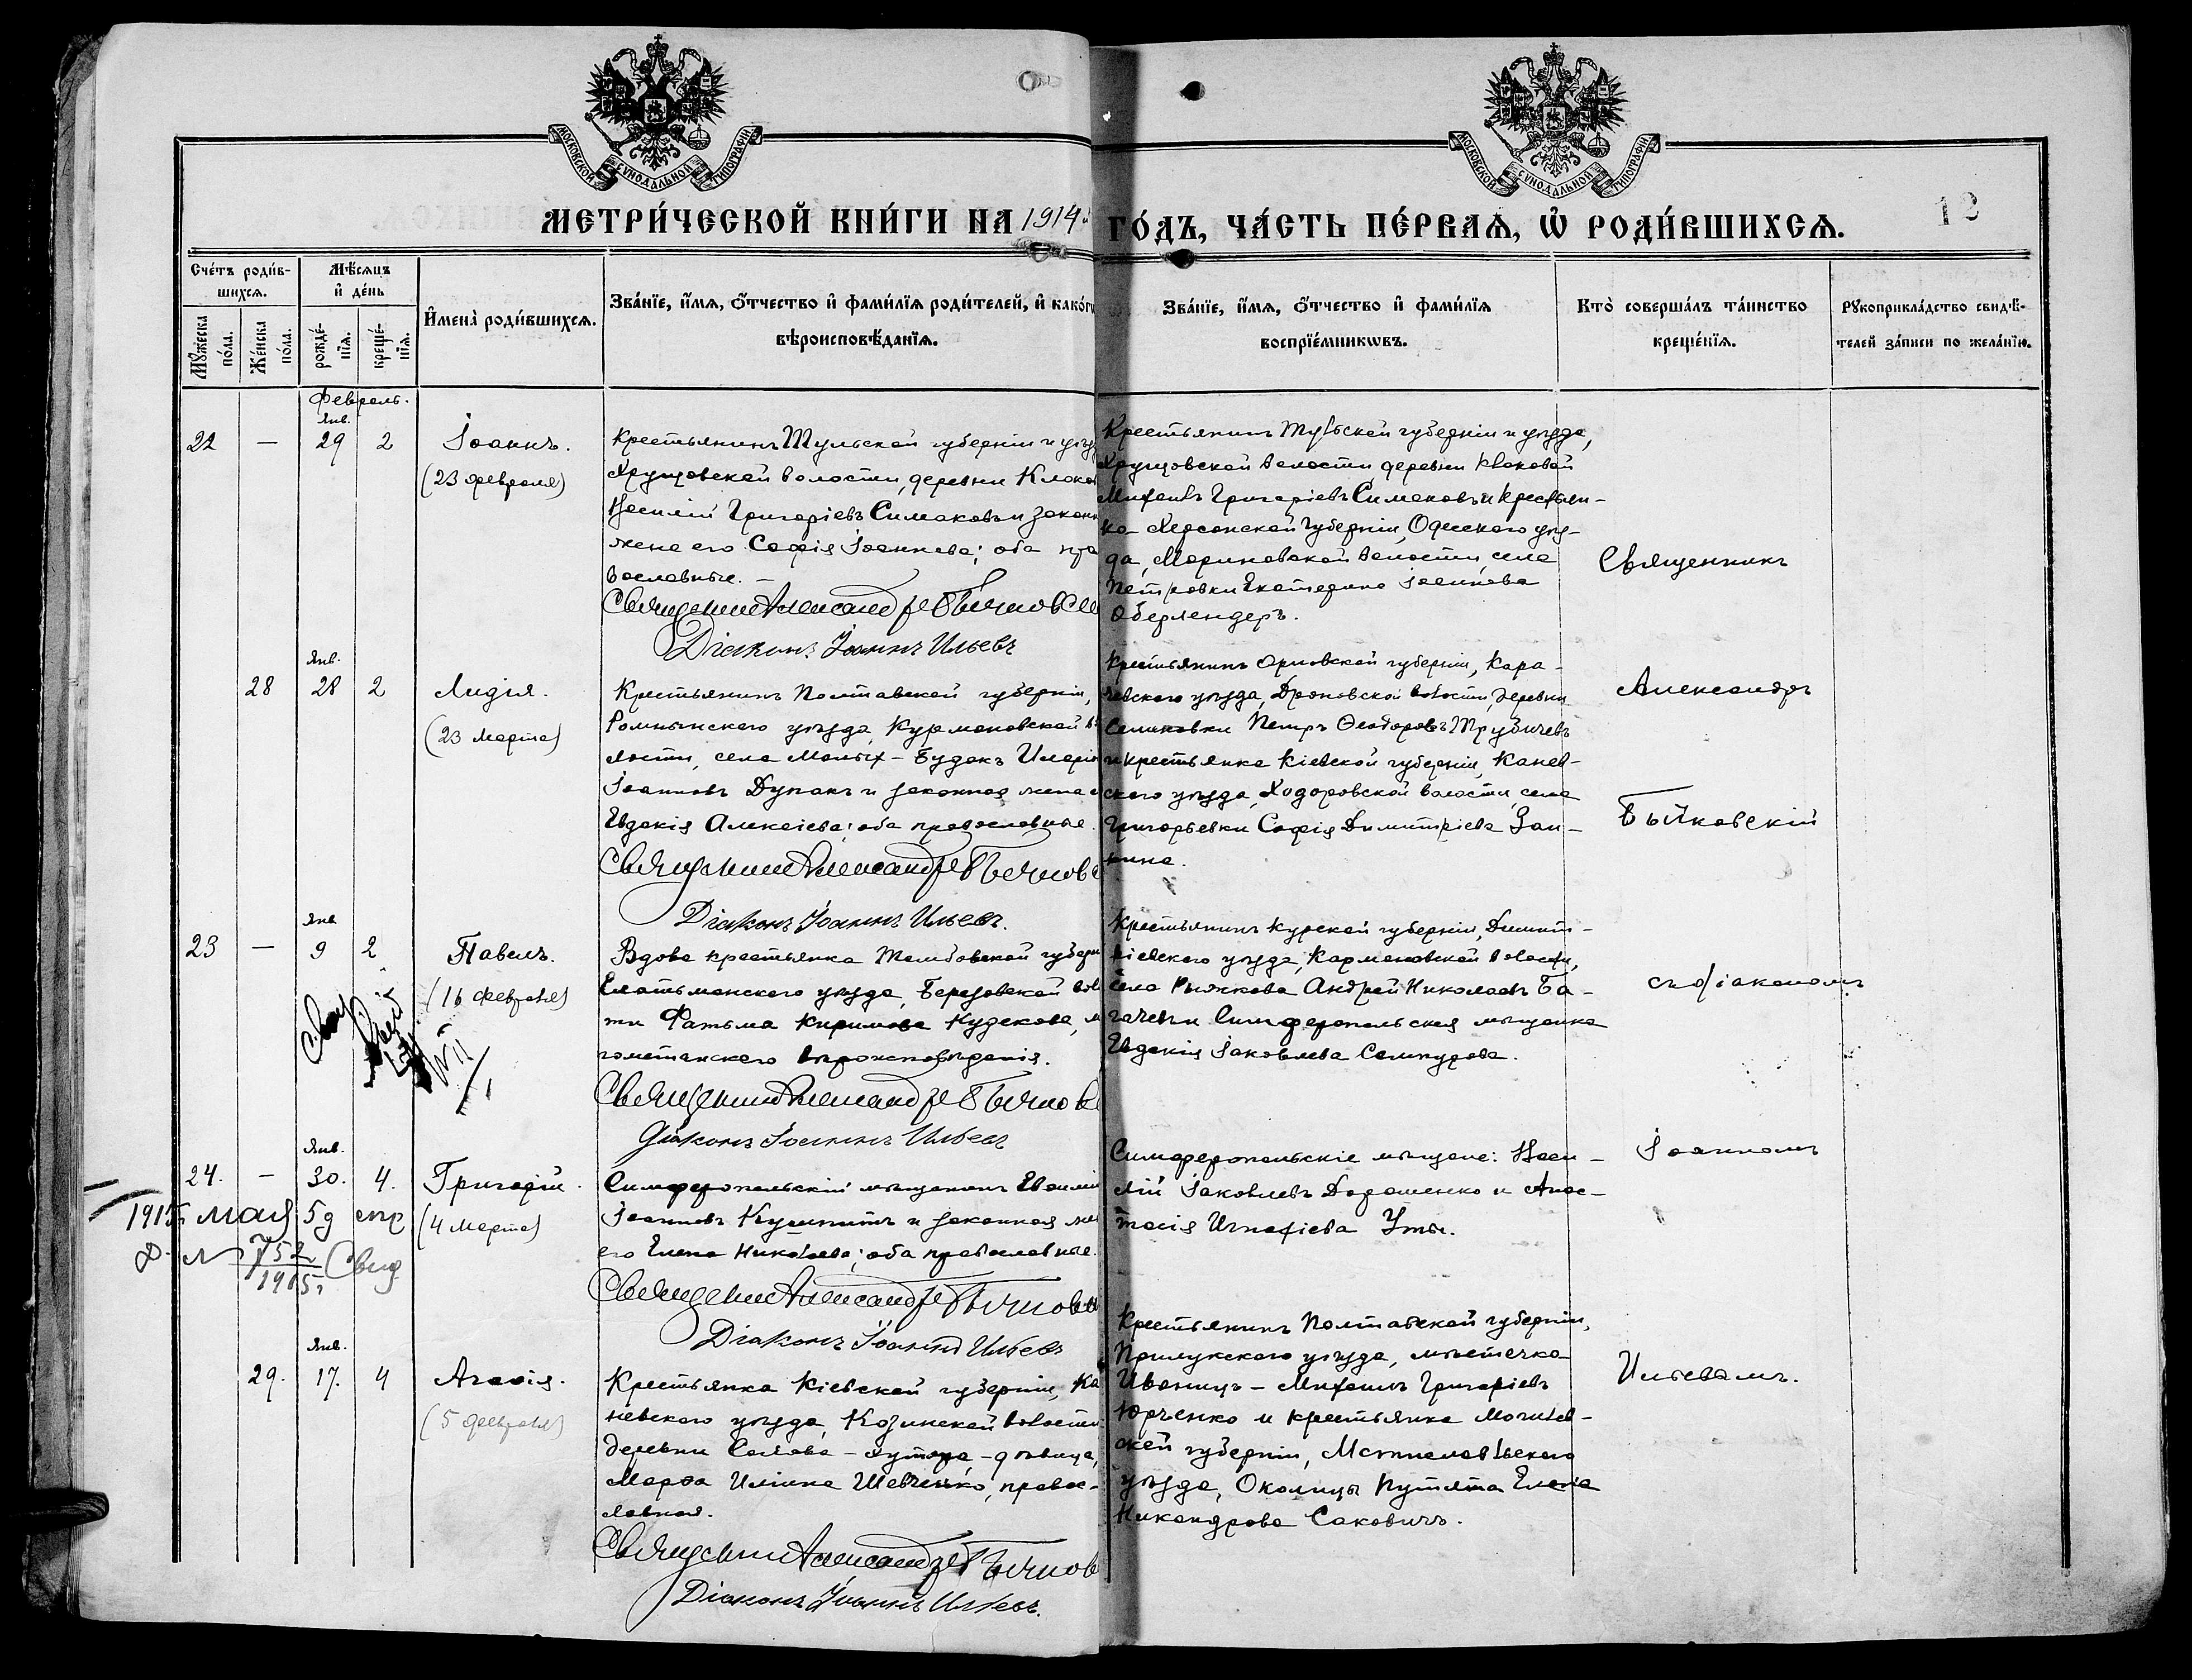 МОСКОВСКОЙ СУНОДАЛЬНОЙ ТИПОГРАФІИ
МОСКОВСКОЙ СУНОДАЛЬНОЙ ТИПОГРАФІИ
МЕТРИ́ЧЕСКОЙ КНИ́ГИ НА 1914
ГО́ДЪ, ЧА́СТЬ ПЕ́РВАѦ, Ѡ РОДИ́ВШИХСѦ.
12
Сче́тъ роди́в-
шихсѧ.
Мꙋ́жеска по́ла.
Же́нска по́ла.
Мѣ́сѧцъ
и҆ де́нь
рожде́-
нїѧ.
креще́-
нїѧ.
И҆мена̀ роди́вшихсѧ.
Зва́нїе, и҆́мѧ, ѻ҆́тчество и҆ фами́лїѧ роди́телей, и҆ како́гѡ
вѣроисповѣ́данїѧ.
Зва́нїе, и҆́мѧ, ѻ҆́тчество и҆ фами́лїѧ
воспрїе́мникѡвъ.
Кто̀ соверша́лъ та́инство
креще́нїѧ.
Рꙋкоприкла́дство свидѣ́-
телей за́писи по жела́нїю.
Февраль.
Янв.
22 — 29 2 Іоаннъ.
(23 февраля)
Крестьянинъ Тульской губерніи и уѣз
Хрущовской волости, деревни Клоков
Василій Григоріевъ Симаковъ и законн
жена его Софія Іоаннова; оба пра
вославные. —
Священникъ Александръ Бычковс
Діаконъ Іоаннъ Ильевъ
Крестьянинъ Тульской губерніи и уѣзда,
Хрущовской волости, деревни Клоковой
Михаилъ Григоріевъ Симаковъ и крестьян-
ка Херсонской губерніи, Одесскаго уѣз-
да, Мариновской волости, села
Петровки Екатерина Іосифова
Оберлендеръ.
Янв.
28 28 2 Лидія.
(23 марта)
Крестьянинъ Полтавской губерніи,
Роменскаго уѣзда, Курмановской во
лости, села Малых-Будокъ Иларіо
Іоанновъ Дупакъ и законная жена е
Евдокія Алексіева; оба православные.
Священникъ Александръ Бычковс
Діаконъ Іоаннъ Ильевъ.
Крестьянинъ Орловской губерніи, Кара-
чевскаго уѣзда, Дроновской волости, деревни
Семеновки Петръ Ѳеодоровъ Трубичевъ
и крестьянка Кіевской губерніи, Канев-
скаго уѣзда, Ходоровской волости, села
Григорьевки Софія Димитріева Зои-
кина.
Янв
23 — 9 2 Павелъ.
(16 февраля)
Вдова крестьянка Тамбовской губерн
Елатьманскаго уѣзда, Березовской вол
ти Фатьма Киримова Кудекова, м
гометанскаго вѣроисповѣданія.
Священникъ Александръ Бычковс
Діаконъ Іоаннъ Ильевъ
Крестьянинъ Курской губерніи, Димит-
ріевскаго уѣзда, Кармановской волости,
села Рыжкова Андрей Николаевъ Ба-
Симферопольская мѣщанка
Евдокія Іаковлева
Янв.
24. — 30. 4. Григорій.
(4 марта)
1915 мая 5 д
752
1915 г Свид
Симферопольскій мѣщанинъ
Іоанновъ и законная же
его Елена Николаева; оба православные.
Священникъ Александръ Бычковс
Діаконъ Іоаннъ Ильевъ
Симферопольскіе мѣщане: Васи-
лій Іаковлевъ Дорошенко и Анас-
тасія Игнатіева Уты.
Янв.
29. 17. 4 Агаѳія.
(5 февраля)
Крестьянка Кіевской губерніи, Ка
невскаго уѣзда, Козинской волости
деревни -хутора-дѣвица,
Марѳа Иліина Шевченко, право-
славная.
Священникъ Александръ Бычков
Діаконъ Іоаннъ Ильевъ.
Крестьянинъ Полтавской губерніи,
Прилукскаго уѣзда, мѣстечка
Иваницъ — Михаилъ Григоріевъ
Юрченко и крестьянка Могилев-
ской губерніи, Мстиславльскаго
уѣзда, Околицы Путята Елена
Никандрова Саковичъ.
Священникъ
Александръ
Бычковскій
съ діакономъ
Іоанномъ
Ильевымъ.